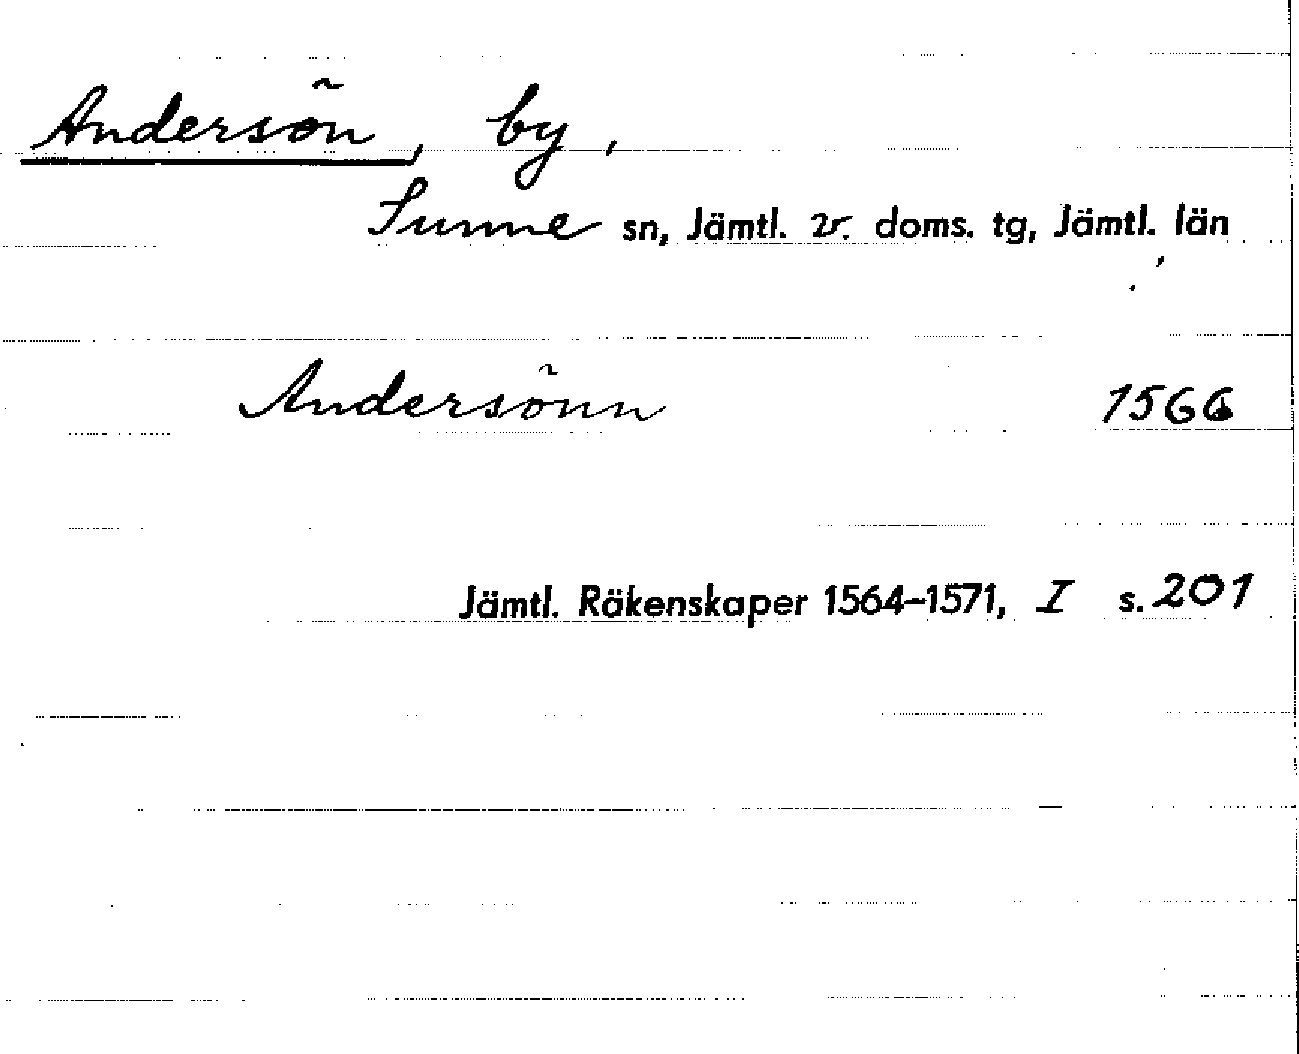 Andersön, by,
Sunne sn, Jämtl. v. doms. tg, Jämtl. län
Andersönn 1566
Jämtl. Räkenskaper 1564-1571, I s. 201